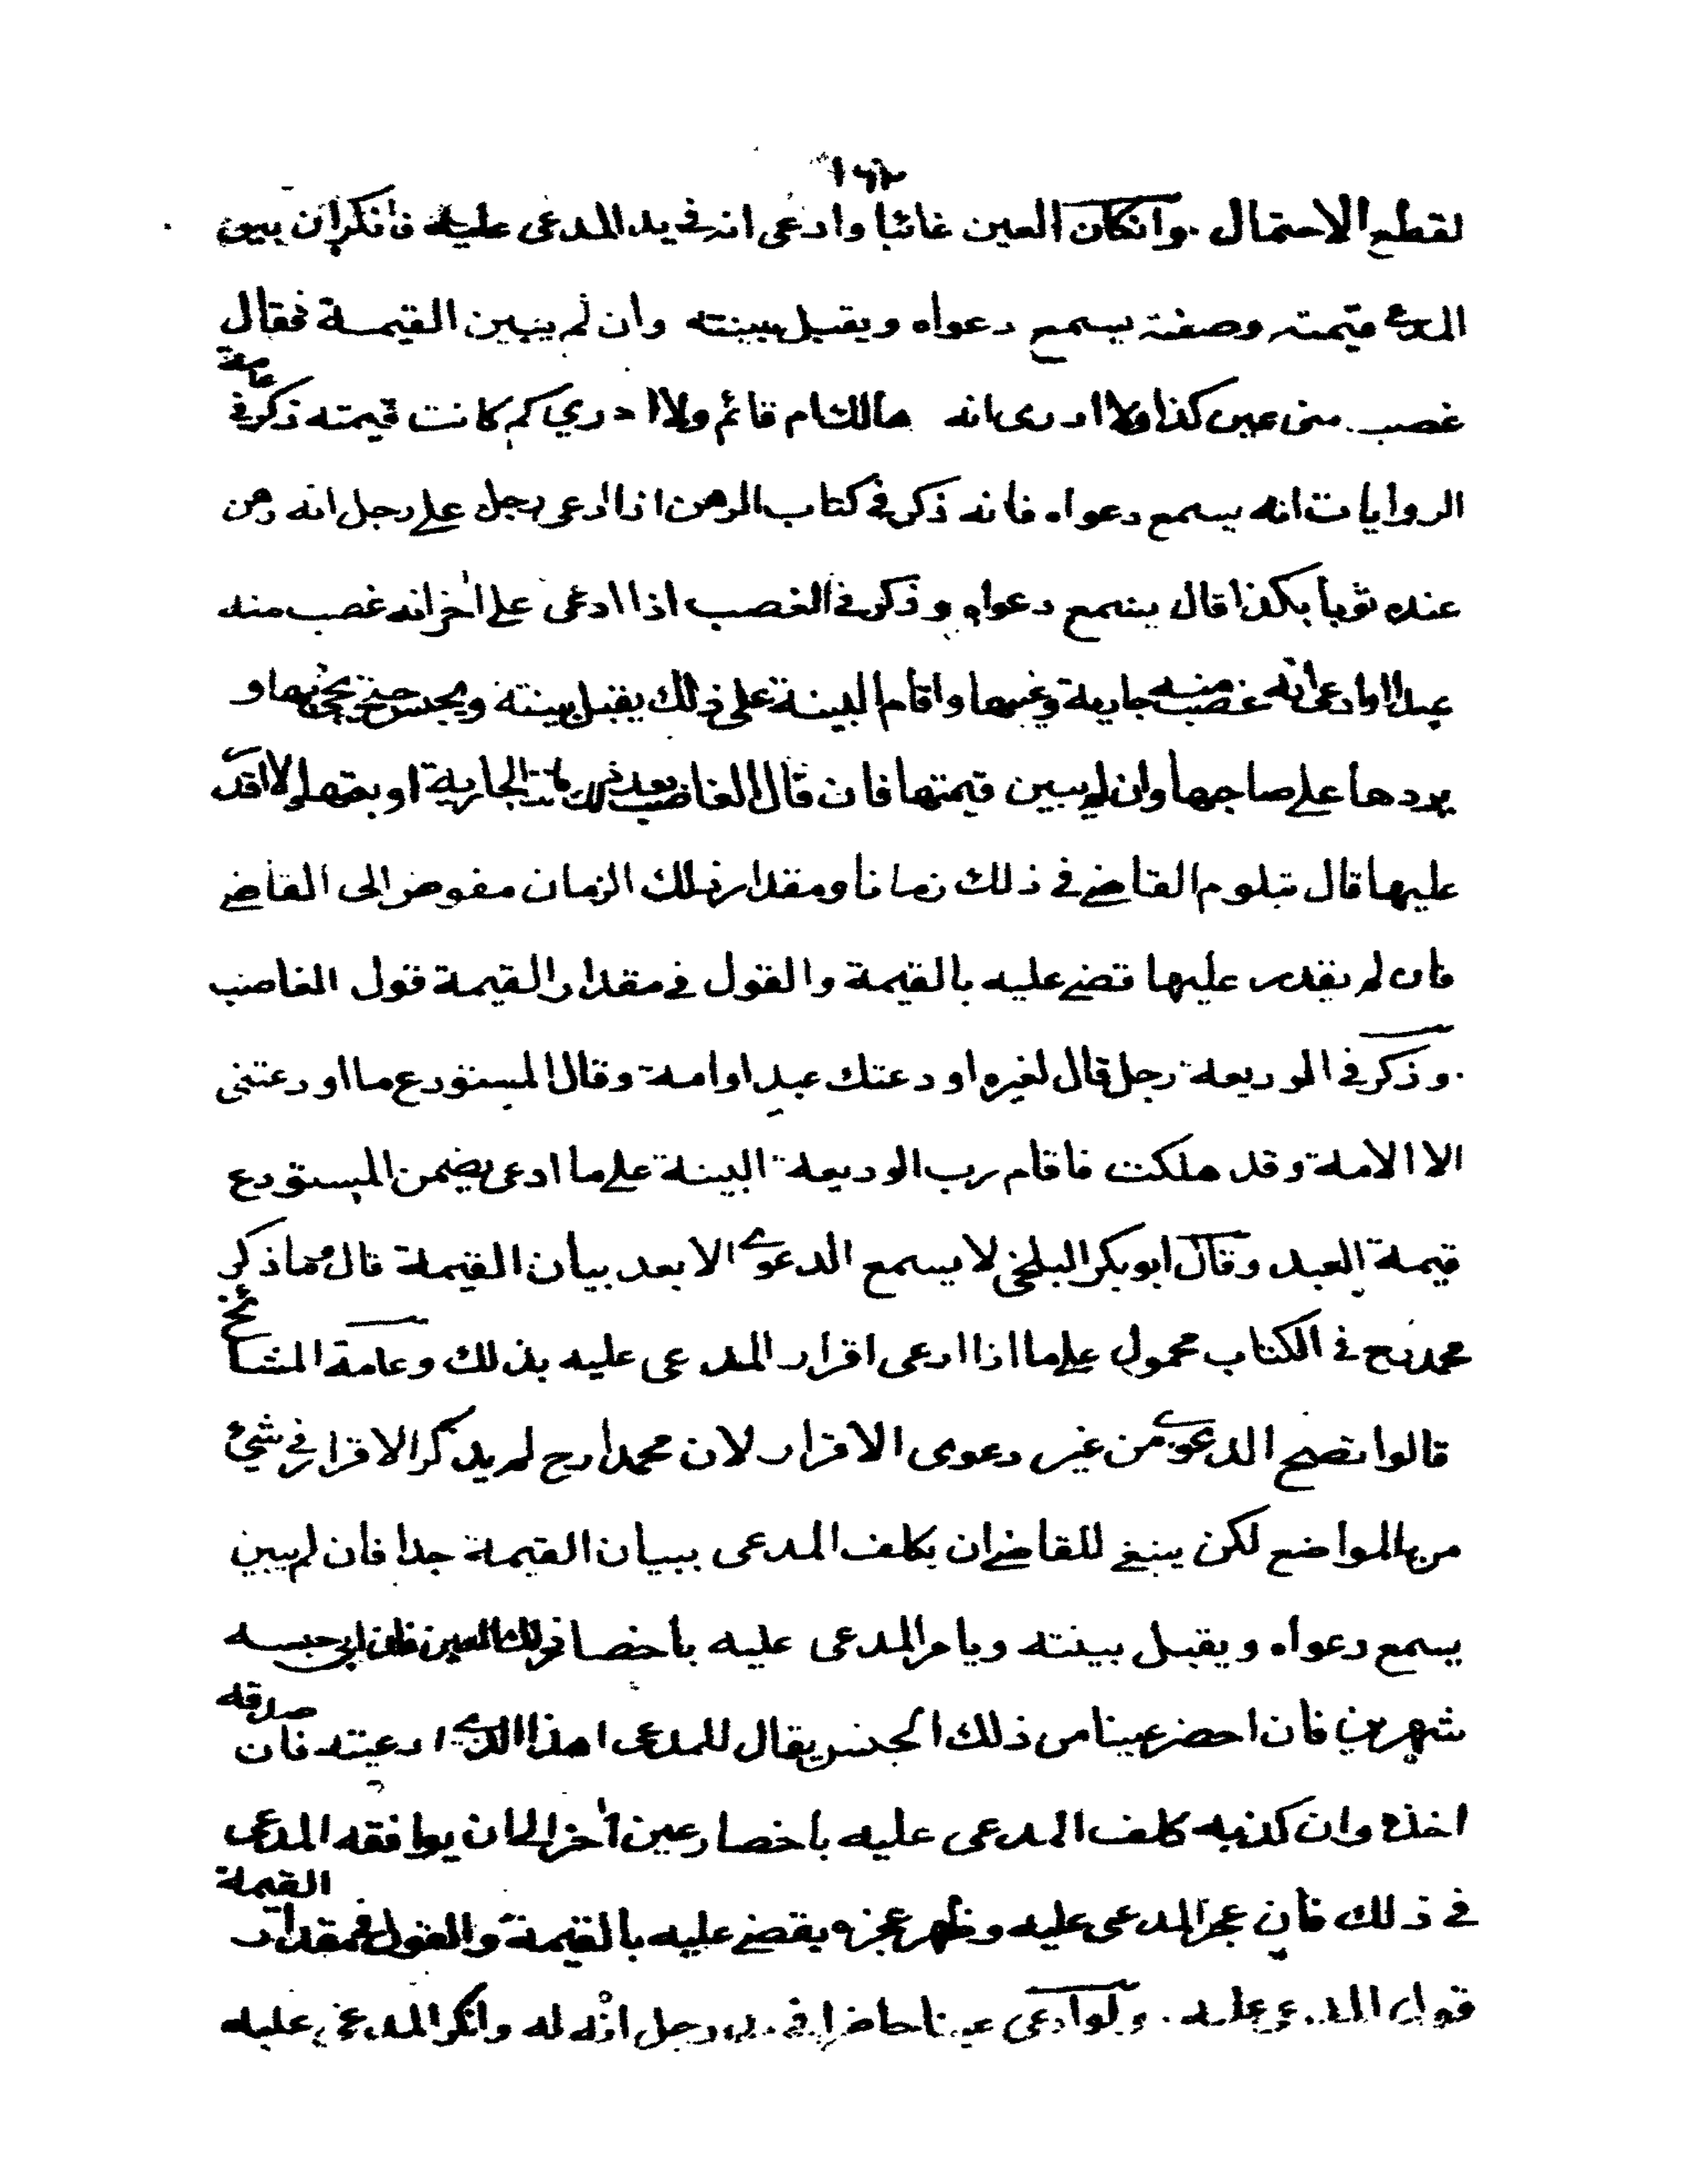 ١٦٢
لقطع الاحتمال وانكان العين غائبا وادعى انه في يد المدعى عليه فانكر ان بين
المدعى قيمته وصفته يسمع دعواه ويقبل ببينته وان لم يبين القيمة فقال
غصب منى عين كذا ولا ادرى انه هالك ام قائم ولا ادري كم كانت قيمته ذكر في عامة
الروايات انه يسمع دعواه فانه ذكر في كتاب الرهن اذا ادعى رجل على رجل انه رهن
عنده ثوبا بكذا قال يسمع دعواه وذكر في الغصب اذا ادعى على اخر انه غصب منه
عبدا او ادعى انه غصب منه جارية وغيبها واقام البينة على ذلك يقبل بينته ويحبس حتى يجئ بها و
يردها على صاحبها وان لم يبين قيمتها فان قال الغاصب بعد ذلك ماتت الجارية او بعتها ولا اقدر
عليها قال يتلوم القاضي في ذلك زمانا ومقدار ذلك الزمان مفوض الى القاضي
فان لم يقدر عليها قضى عليه بالقيمة والقول في مقدار القيمة قول الغاصب
وذكر في الوديعة رجل قال لغيره اودعتك عبدا وامة وقال المستودع ما اودعتنى
الا الامة وقد هلكت فاقام رب الوديعة البينة على ما ادعى يضمن المستودع
قيمة العبد وقال ابو بكر البلخى لا يسمع الدعوى الا بعد بيان القيمة قال وما ذكر
محمد رح في الكتاب محمول على ما اذا ادعى اقرار المدعى عليه بذلك وعامة المشائخ
قالوا تصح الدعوى من غير دعوى الاقرار لان محمدا رح لم يذكر الاقرار في شئ
من المواضع لكن ينبغي للقاضي ان يكلف المدعى ببيان القيمة جدا فان لم يبين
يسمع دعواه ويقبل بينته ويامر المدعى عليه باحضار ذلك العين فان ابى حبسه
شهرين فان احضر عينا من ذلك الجنس يقال للمدعى اهذا الذي ادعيته فان صدقه
اخذه وان كذبه كلف المدعى عليه باحضار عين آخر الى ان يوافقه المدعى
في ذلك فان عجز المدعى عليه وظهر عجزه يقضى عليه بالقيمة والقول في مقدار القيمة
قول المدعى عليه ولو ادعى عينا حاضرا في يد رجل انه له وانكر المدعى عليه